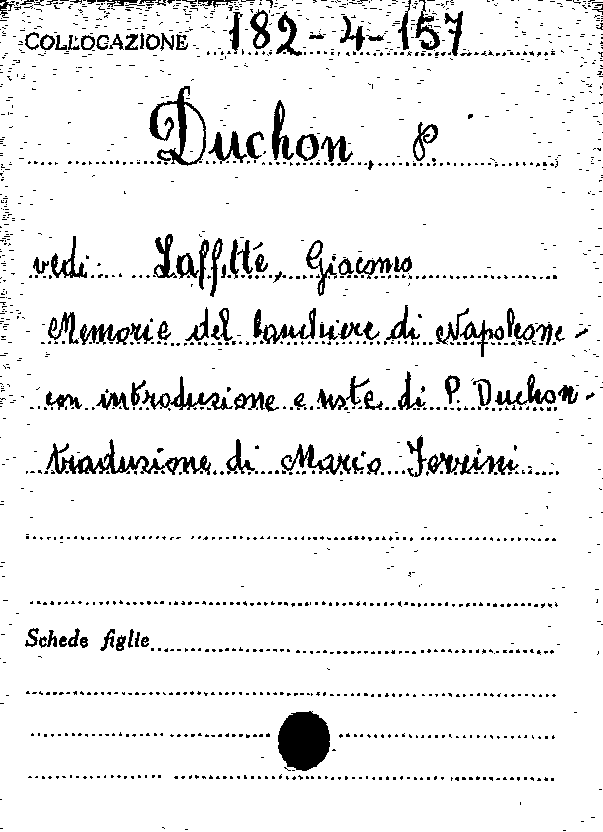 COLLOCAZIONE 182-4-157
Duchon, P.
vedi: Laffitte, Giacomo
Memorie del banchiere di Napoleone -
con introduzione e note di P. Duchon -
traduzione di Marco Ferrini.
Schede figlie